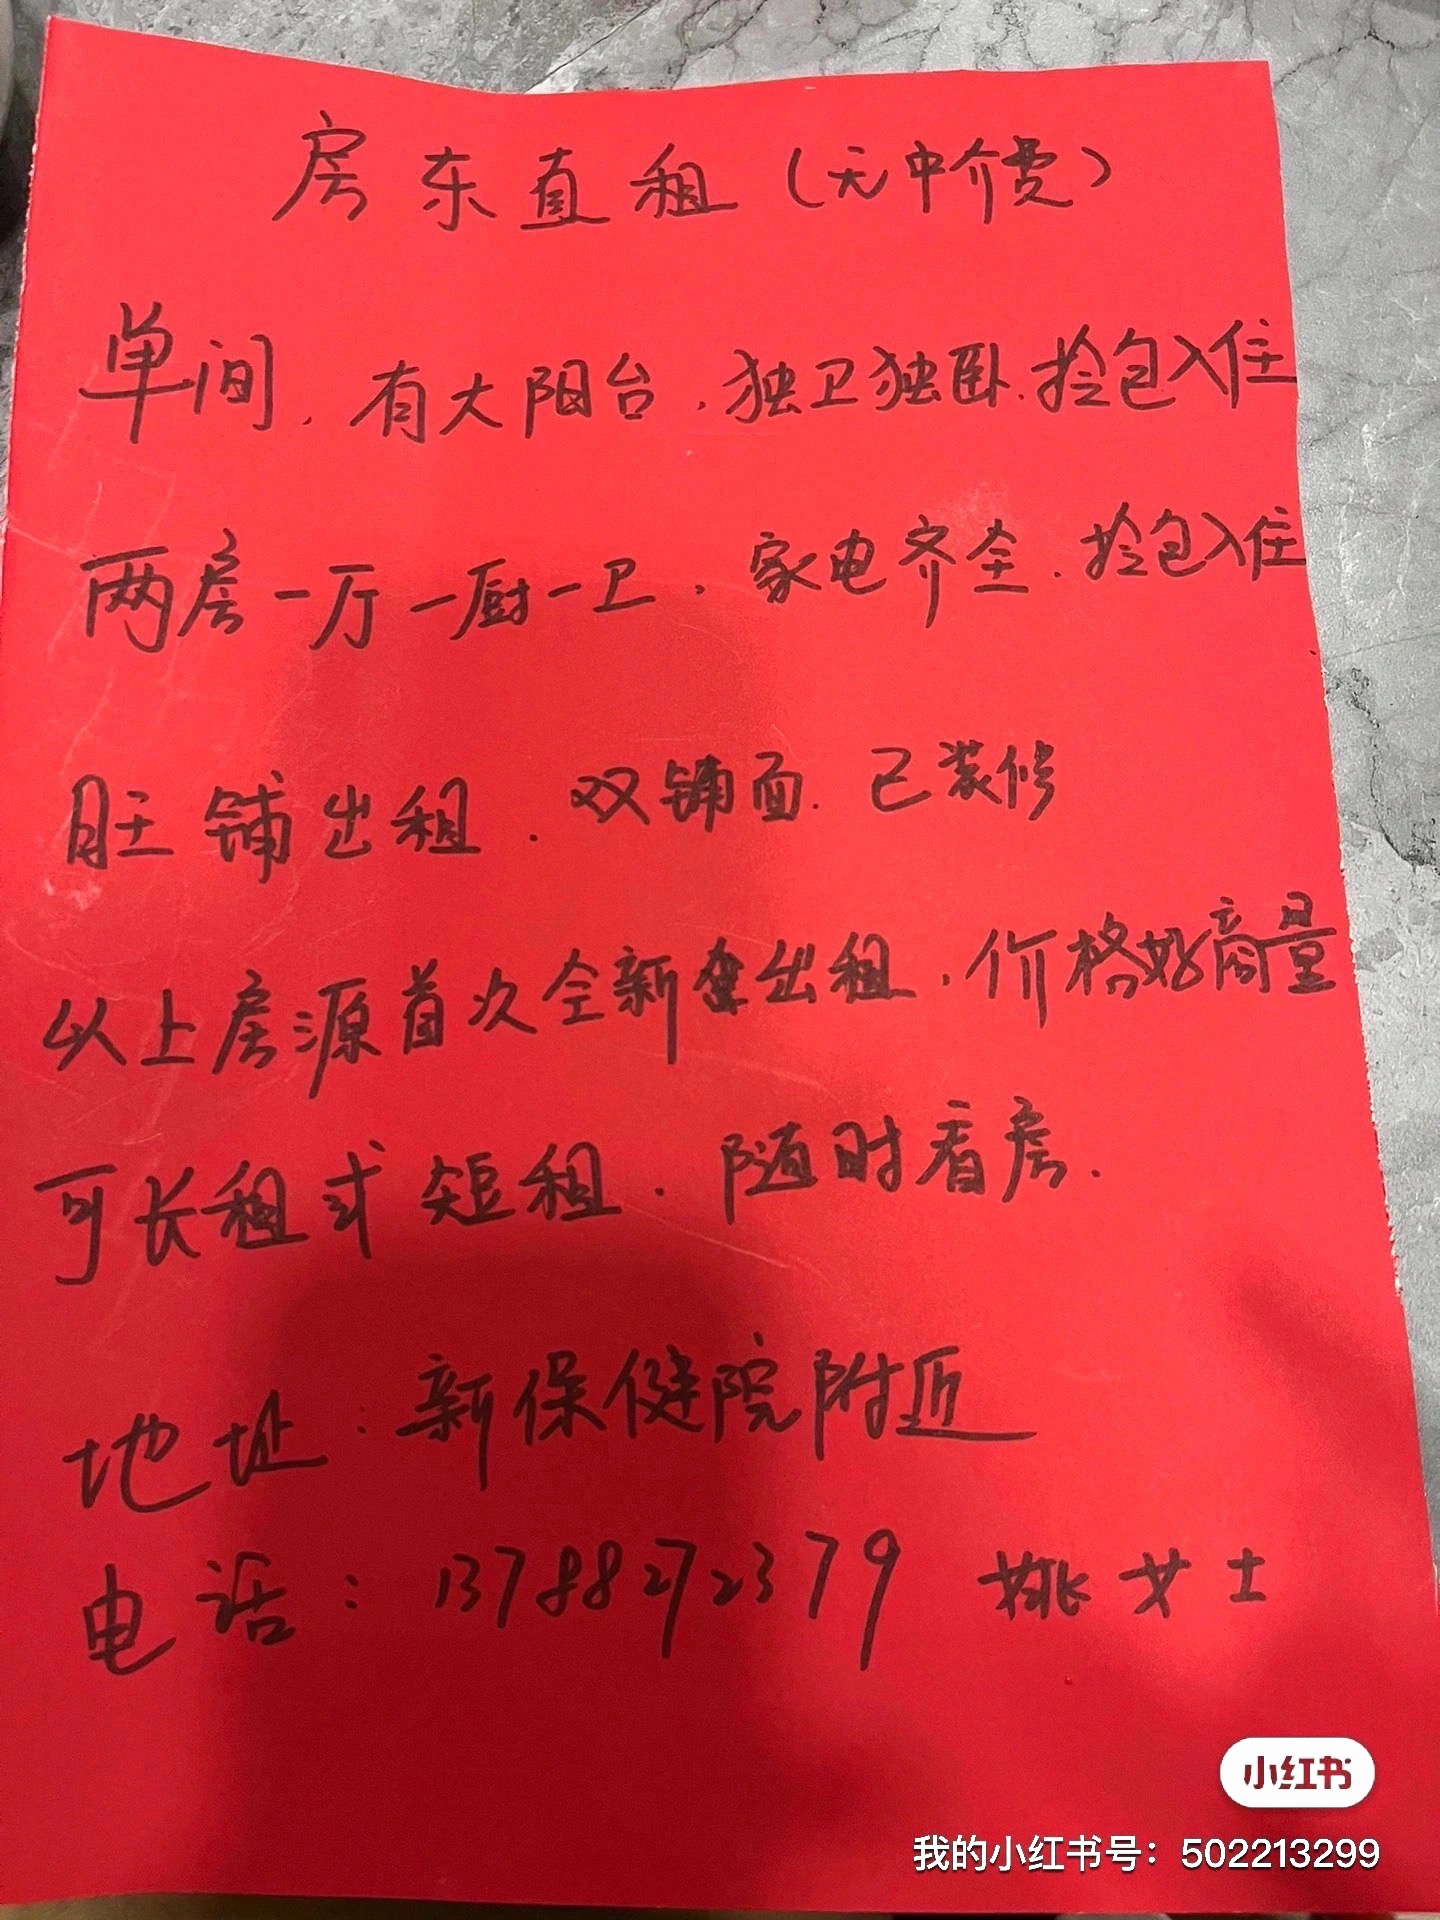 房东直租(无中介费)
单间,有大阳台,独卫独卧.拎包入住
两房一厅一厨一卫,家电齐全.拎包入住
旺铺出租.双铺面.已装修
以上房源首次全新出租,价格好商量
可长租或短租.随时看房.
地址:新保健院附近
电话:13788272379 姚女士
小红书
我的小红书号:502213299